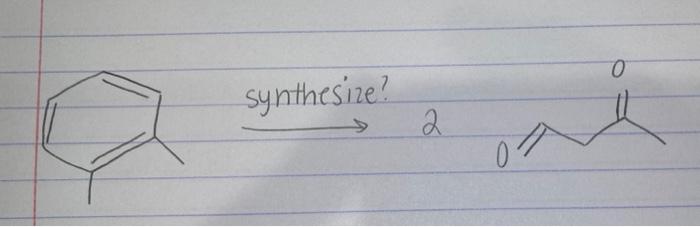 synthesize?
2
O
O